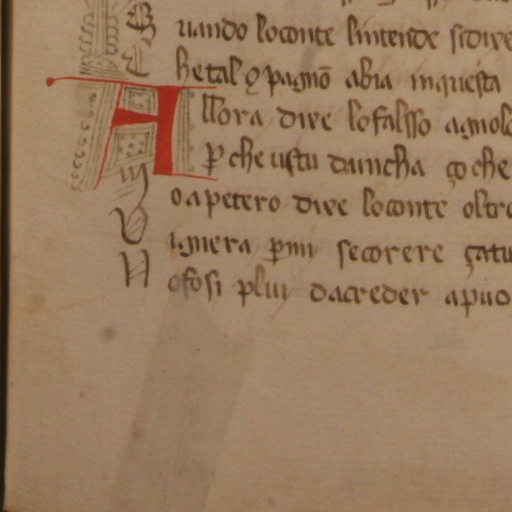 Quando loconte lintende sidire
Che tal ꝯpagnõ abia inquesta
Allora dire lo falsso agnolo
ꝑ che ustu dauncha ço che
Moapetero dire loconte oltre
Uignera ꝑmi secorere çatu
Nofosi plui dacreder apuo